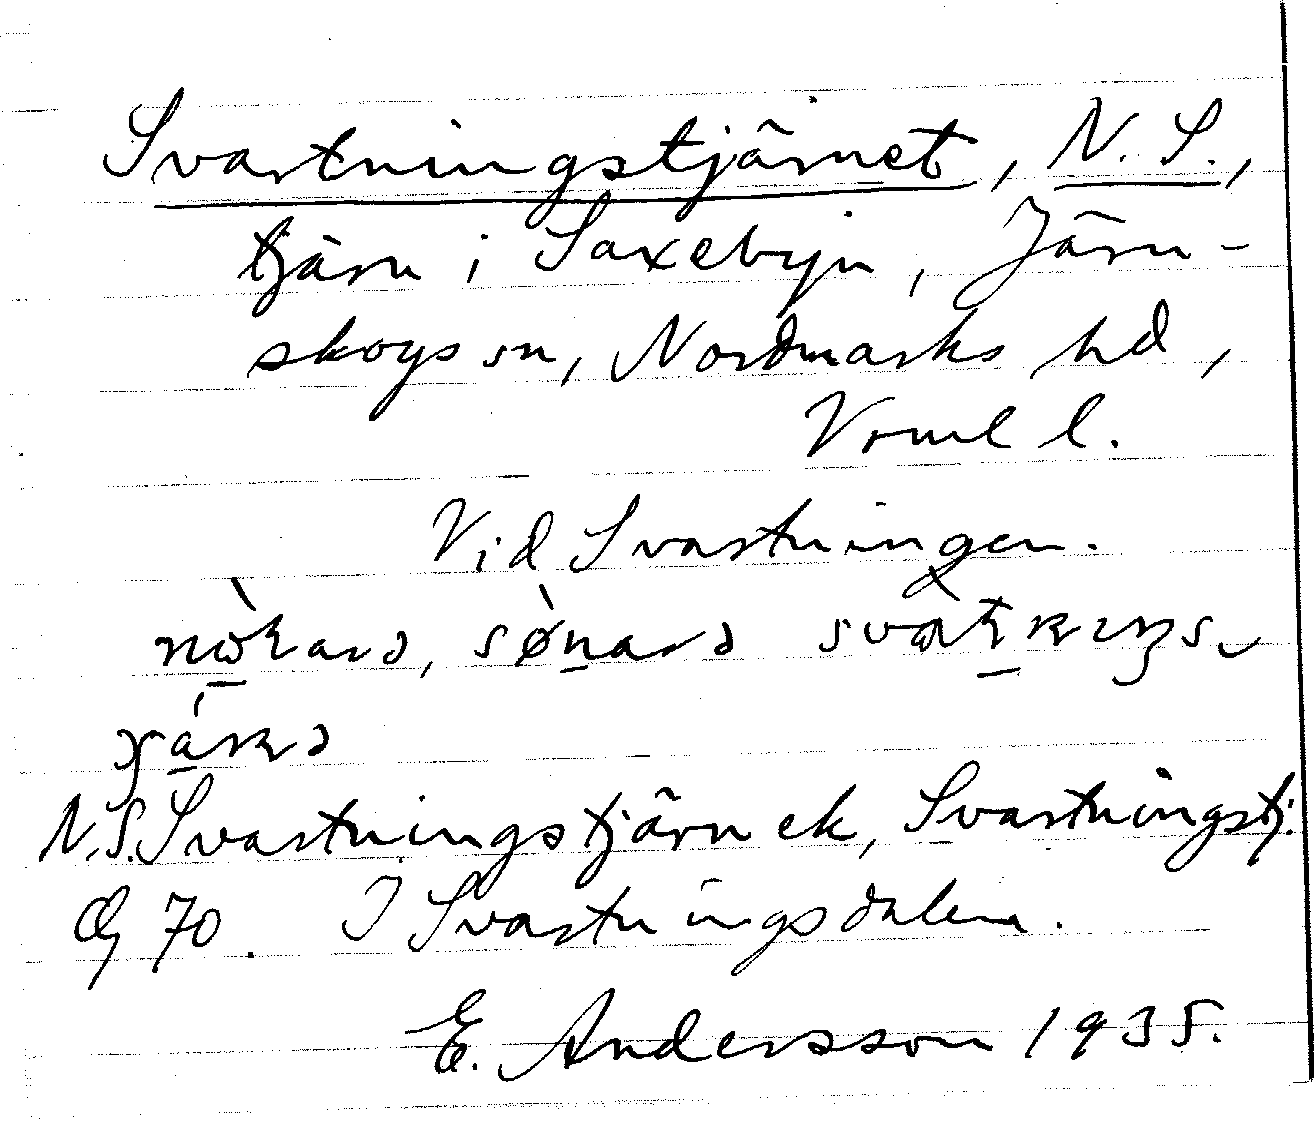 Svartningstjärnet, N. S.,
tjärn i Saxebyn, Järn-
skogs sn, Nordmarks hd,
Vrml l.
Vid Svartningen.
N.S. Svartningstjärn ek, Svartningstj.
70. I Svartningsdalen.
E. Andersson 1935.